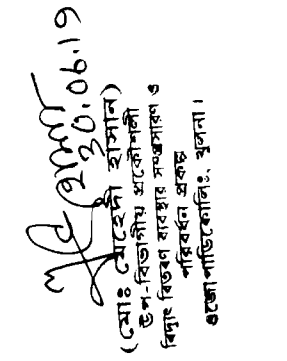 30.06.19
(মোঃ মেহেদী হাসান)
উপ-বিভাগীয় প্রকৌশলী
বিদ্যুৎ বিতরণ ব্যবস্থার সম্প্রসারণ ও
পরিবর্ধন প্রকল্প
ওজোপাডিকোলিঃ, খুলনা।